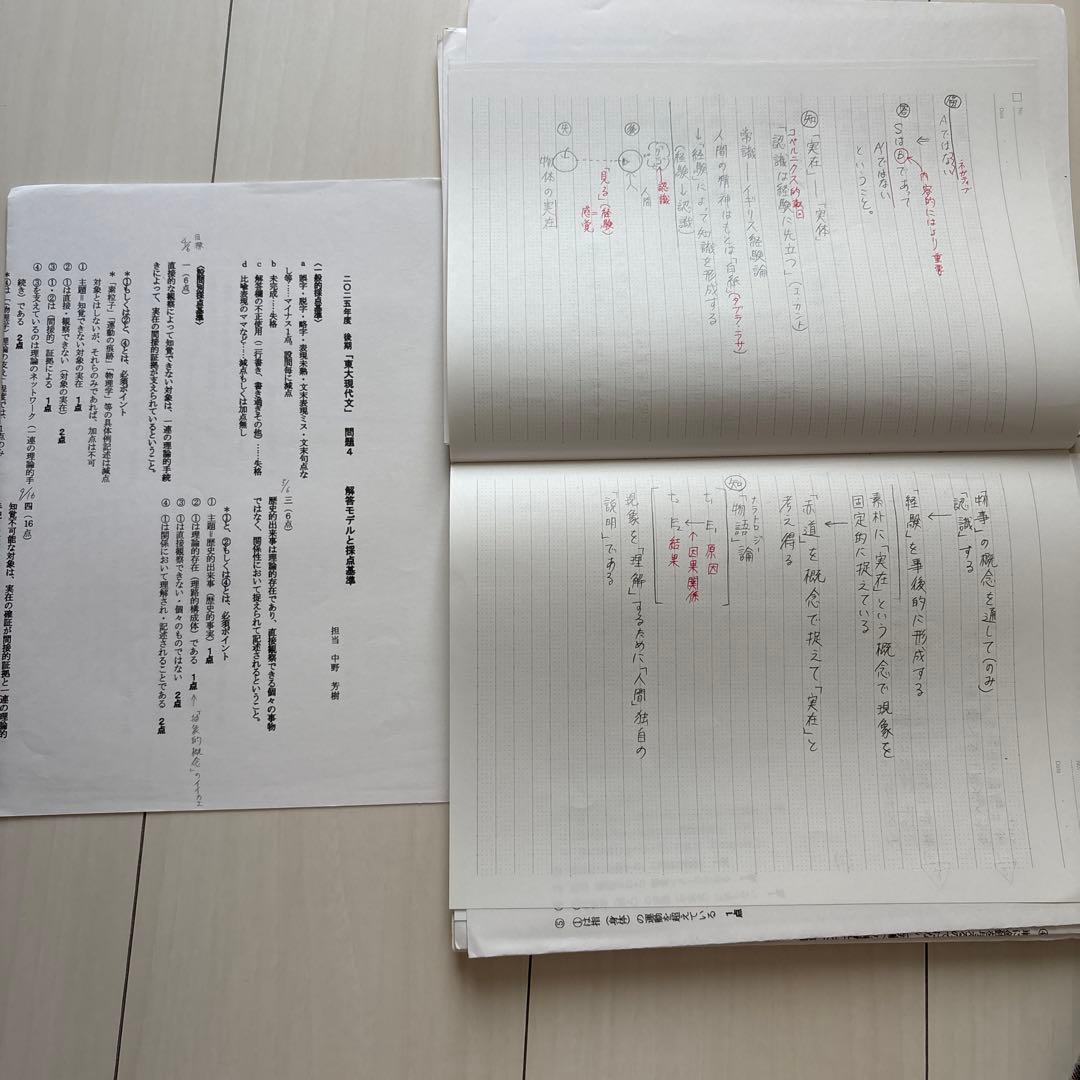 二〇二五年度 後期「東大現代文」 問題4 解答モデルと採点基準
担当 中野 芳樹
〈一般的採点基準〉
a 誤字・脱字・略字・表現未熟・文末表現ミス・文末句点な
し等……マイナス1点、設問毎に減点
b 未完成……失格
c 解答欄の不正使用(二行書き、書き過ぎその他)……失格
d 比喩表現のママなど……減点もしくは加点無し
〈設問別採点基準〉
目標
一(6点)
直接的な観察によって知覚できない対象は、一連の理論的手続
きによって、実在の間接的証拠が支えられているということ。
*①もしくは②と、④とは、必須ポイント
*「素粒子」「運動の痕跡」「物理学」等の具体例記述は減点
対象とはしないが、それらのみであれば、加点は不可
① 主題=知覚できない対象の実在 1点
② ①は直接・観察できない(対象の実在) 2点
③ ①・②は(間接的)証拠による 1点
④ ③を支えているのは理論のネットワーク(一連の理論的手
続き)である 2点
三(6点)
歴史的出来事は理論的存在であり、直接観察できる個々の事物
ではなく、関係性において捉えられて記述されるということ。
*①と、②もしくは④とは、必須ポイント
① 主題=歴史的出来事(歴史的事実) 1点
② ①は理論的存在(理路的構成体)である 1点
↑「抽象的概念」のイイカエ
③ ①は直接観察できない・個々のものではない 2点
④ ①は関係において理解され・記述されることである 2点
四(16点)
知覚不可能な対象は、実在の確証が間接的証拠と一連の理論的
No.
Date
傍
Aではない
ネガティブ
⇐
答
Sはbであって
内容的にはより重要
A'ではない
ということ。
知
「実在」―「実体」
コペルニクス的転回
「認識は経験に先立つ」(I.カント)
常識 ― イギリス経験論
人間の精神はもとは「白紙」(タブラ・ラサ)
↓「経験」によって知識を形成する
(経験→認識)
認識
人間
「見る」(経験)
=
感覚
物体の実在
「物事」の概念を通して(のみ)
「認識」する
「経験」を事後的に形成する
素朴に「実在」という概念で現象を
固定的に捉えている
「赤道」を概念で捉えて「実在」と
考え得る
知
ナラトロジー
「物語」論
t₁ E₁ 原因
↑因果関係
t₂ E₂ 結果
現象を「理解」するために「人間」独自の
「説明」である
⑤ ①は指(身体)の運動を超えている 1点